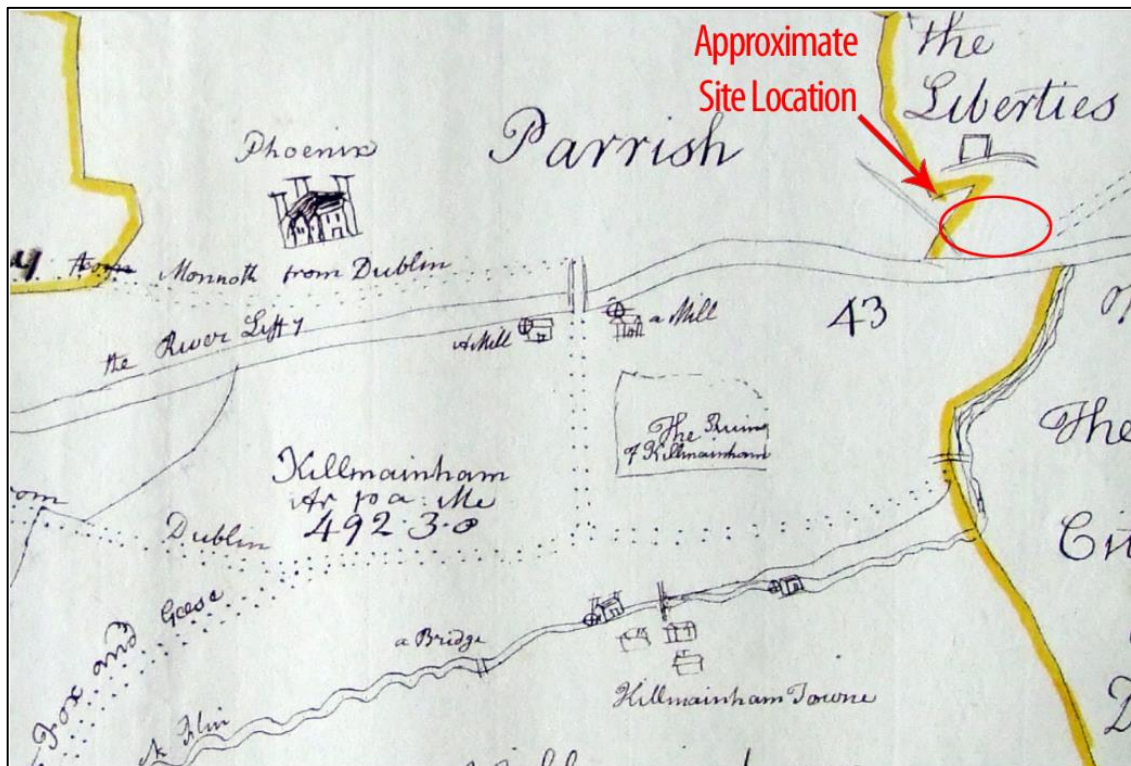 Approximate
Site Location
the
Liberties
Parrish
Phoenix
Monnoth from Dublin
the River Liffy
A Mill
a Mill
43
The Ruins
of Killmainham
Killmainham
Ar pa: Me
492·3·0
Dublin
The
Fox and Geese
a Bridge
Killmainham Towne